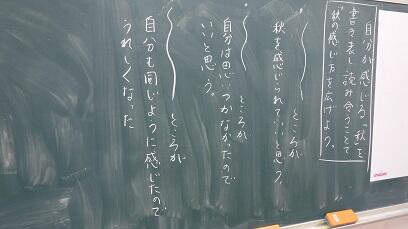 自分が感じる「秋」を
書き表し、読み合うことで
秋の感じ方を広げよう。
ところが
秋を感じられていいと思う。
ところが
自分は思いつかなかったので
いいと思う。
ところが
自分も同じように感じたので
うれしくなった